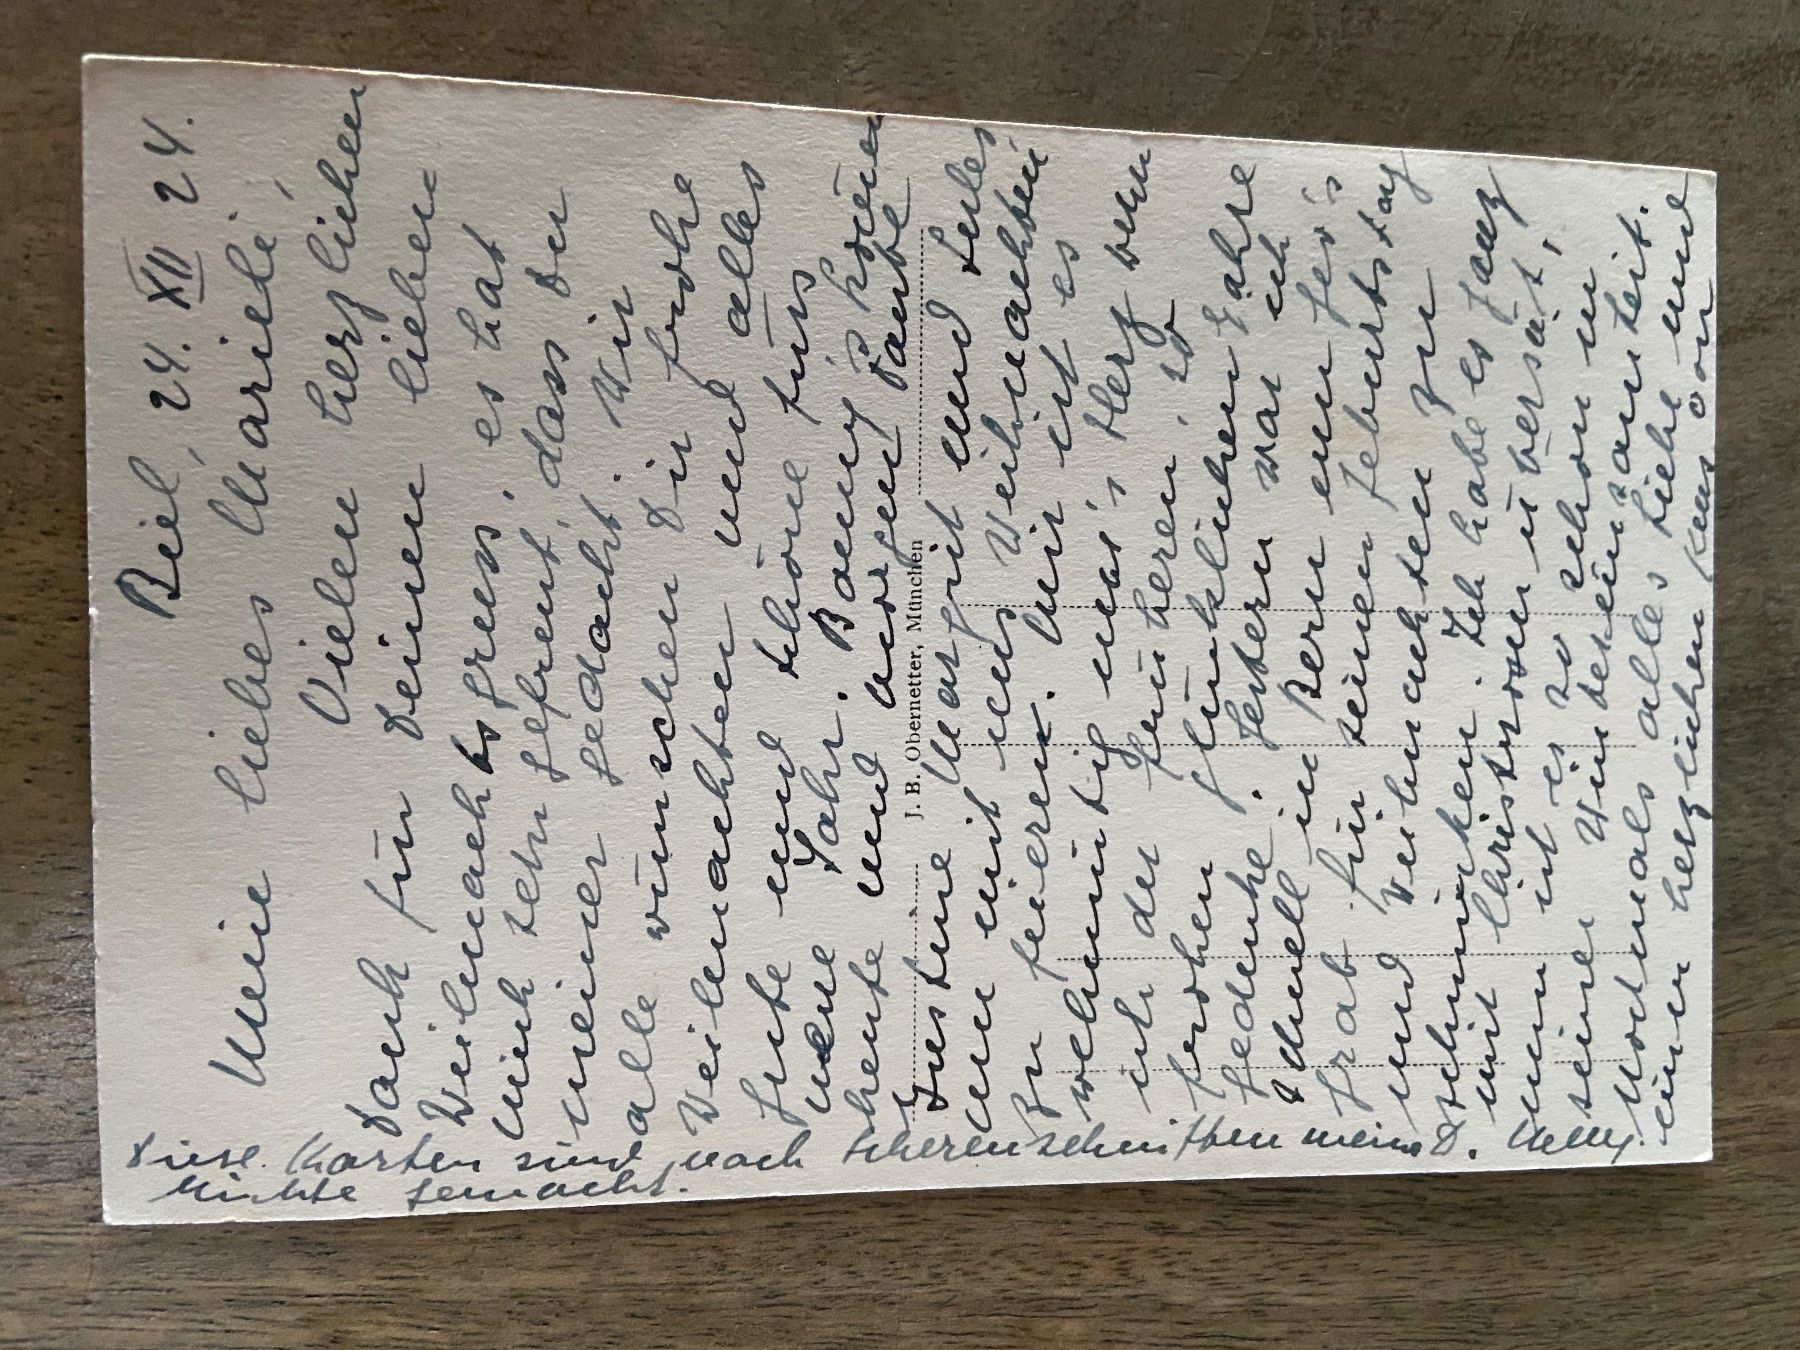 Biel, 24. XII 24.
Mein liebes Marieli,
Vielen herzlichen
Dank für Deinen lieben
Weihnachtsgruss, es hat
mich sehr gefreut, dass Du
meiner gedacht. Wir
alle wünschen Dir frohe
Weihnachten und alles
Gute und Schöne fürs
neue Jahr. Bonny's kommen
heute und morgen Tante
J. B. Obernetter, München
Justine Margrit und
um mit uns Weihnachten
zu feiern. Mir ist es
wehmütig um's Herz wenn
ich der früheren, so
frohen glücklichen Jahre
gedenke. Gestern war ich
schnell in Bern um Fer's
Grab für seinen Geburtstag
und Weihnachten zu
schmücken. Ich habe es ganz
mit Christrosen übersät,
nun ist es so schön in
seiner
Nochmals alles Liebe und
einen herzlichen Kuss von
D. Nelly.
Diese Karten sind nach Scherenschnitten meiner
Nichte gemacht.